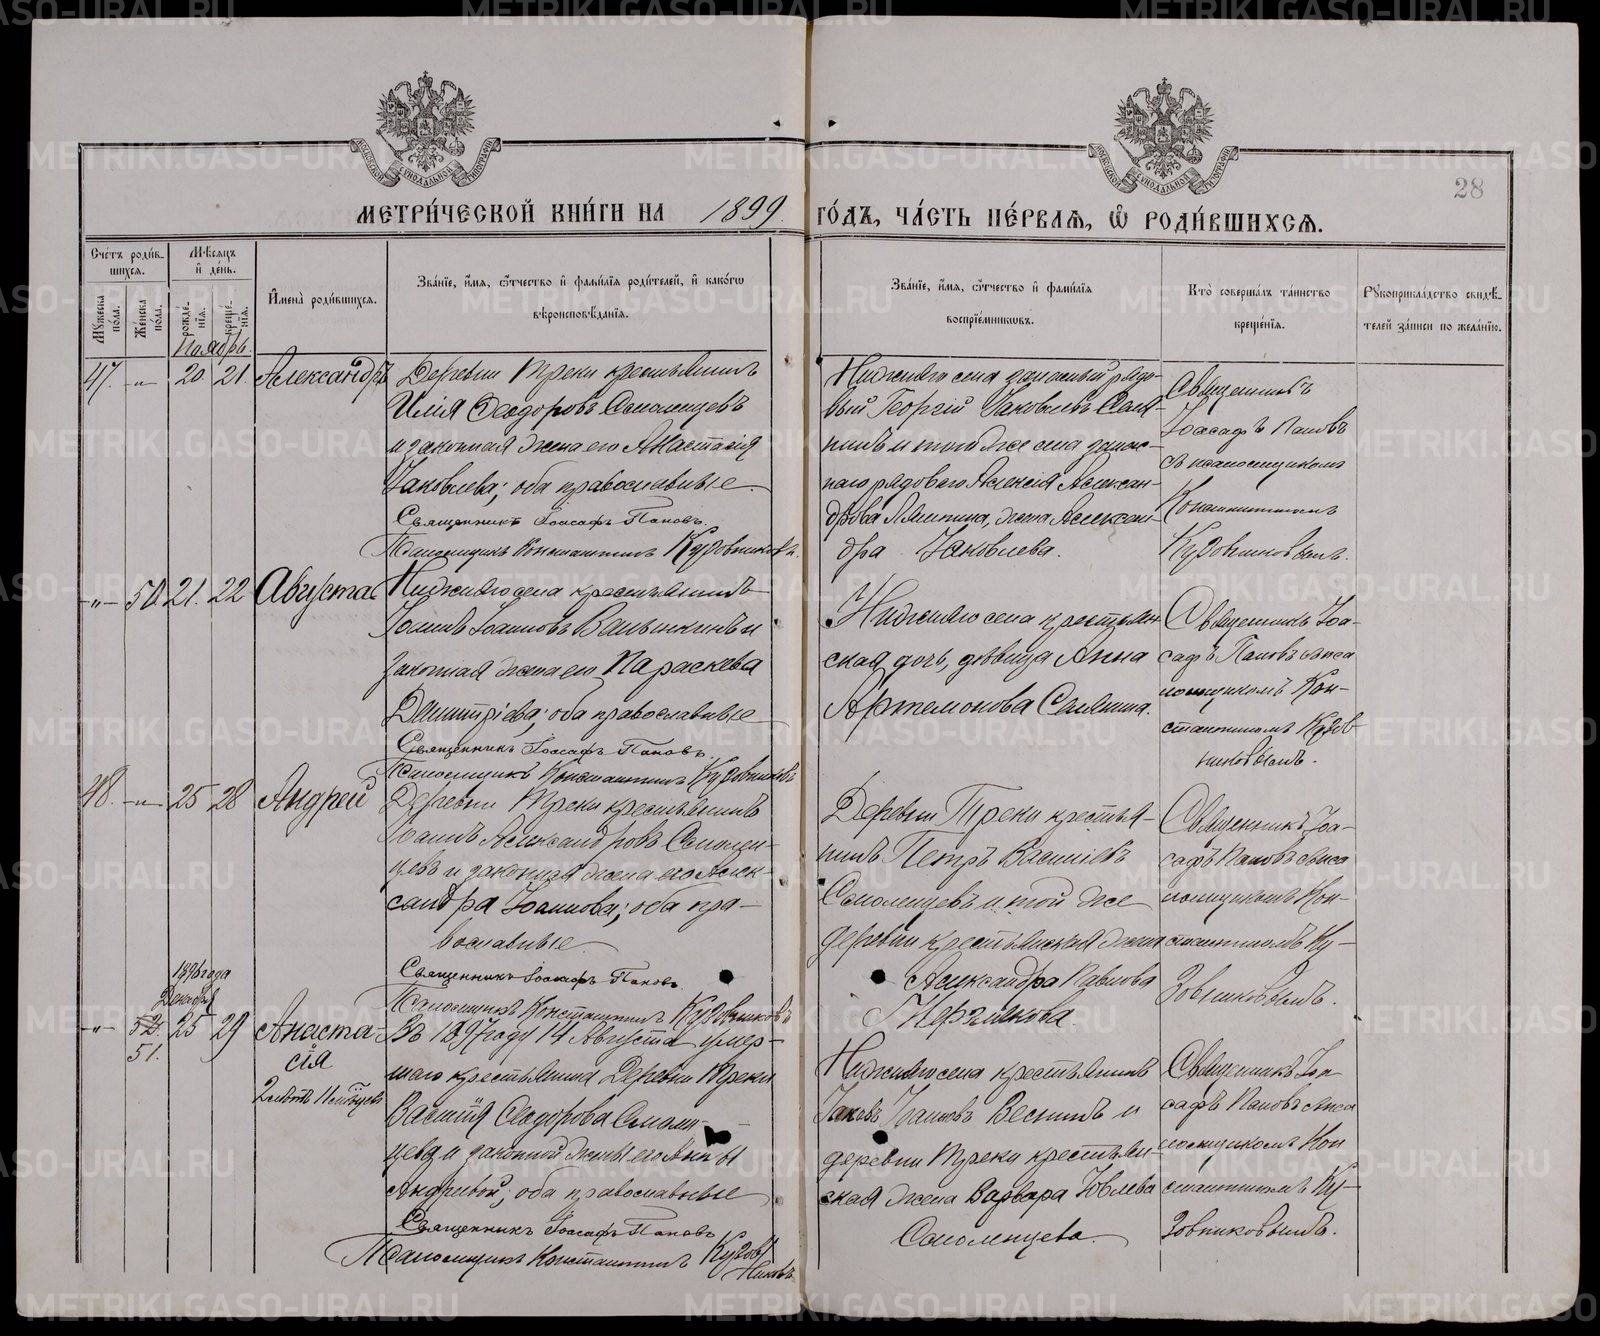 МЕТРИ́ЧЕСКОЙ КНИ́ГИ НА 1899 ГО́ДЪ, ЧА́СТЬ ПЕ́РВАЯ, Ѿ РОДИ́ВШИХСЯ.
28
Сче́тъ роди́в-
шихся.
Му́жеска по́ла.
Же́нска по́ла.
Мѣ́сяцъ
и҆ де́нь.
рожде́-
нїя.
креще́-
нїя.
И҆мена̀ роди́вшихся.
Зва́нїе, и҆́мя, ѻ҆́тчество и҆ фами́лїя роди́телей, и҆ како́гѡ
вѣроисповѣ́данїя.
Зва́нїе, и҆́мя, ѻ҆́тчество и҆ фами́лїя
воспрїе́мниковъ.
Кто̀ соверша́лъ та́инство
креще́нїя.
Рукоприкла́дство свидѣ́-
телей за́писи по жела́нїю.
Ноябрь.
47. -"- 20 21. Александръ
Деревни Треки крестьянинъ
Илія Ѳеодоровъ Соломенцевъ
и законная жена его Анастасія
Іаковлева; оба православные
Священникъ Іоасафъ Поповъ.
Псаломщикъ Константинъ Кузовниковъ.
Нижняго села запасный рядо-
вый Георгій Іаковлевъ Селя-
нинъ и того же села запас-
наго рядоваго Алексія Алексан-
дрова жена Алексан-
дра Іаковлева.
Священникъ
Іоасафъ Поповъ
съ псаломщикомъ
Константиномъ
Кузовниковымъ.
-"- 50 21. 22 Августа
Нижняго села крестьянинъ
Іоаннъ Іоанновъ и
законная жена его Параскева
Димитріева; оба православные
Священникъ Іоасафъ Поповъ.
Псаломщикъ Константинъ Кузовниковъ
Нижняго села крестьян-
ская дочь, дѣвица Анна
Артемонова Селянина.
Священникъ Іоа-
сафъ Поповъ съ пса
ломщикомъ Кон-
стантиномъ Кузов-
никовымъ.
48. -"- 25 28 Андрей
Деревни Треки крестьянинъ
Іоаннъ Александровъ Соломен-
цевъ и законная жена его Алек-
сандра Іоаннова; оба пра-
вославные
Священникъ Іоасафъ Поповъ.
Псаломщикъ Константинъ Кузовниковъ
Деревни Треки крестья-
нинъ Петръ Василіевъ
Соломенцевъ и той же
деревни крестьянская жена
Александра Павлова
Священникъ Іоа-
сафъ Поповъ съ пса
ломщикомъ Кон-
стантиномъ Ку-
зовниковымъ.
года
Декабря
-"- 52 25 29 Анаста-
51.
сія
Въ 1897 году 14 Августа умер-
шаго крестьянина Деревни Треки
Василія Ѳеодорова Соломен-
цева и законной жены его Анны
Андреевой; оба православные
Священникъ Іоасафъ Поповъ
Псаломщикъ Константинъ Кузов-
никовъ
Нижняго села крестьянинъ
Іаковъ Іоанновъ и
деревни Треки крестьян-
ская жена Варвара
Соломенцева.
Священникъ Іоа
сафъ Поповъ съ пса
ломщикомъ Кон
стантиномъ Ку-
зовниковымъ.
METRIKI.GASO-URAL.RU